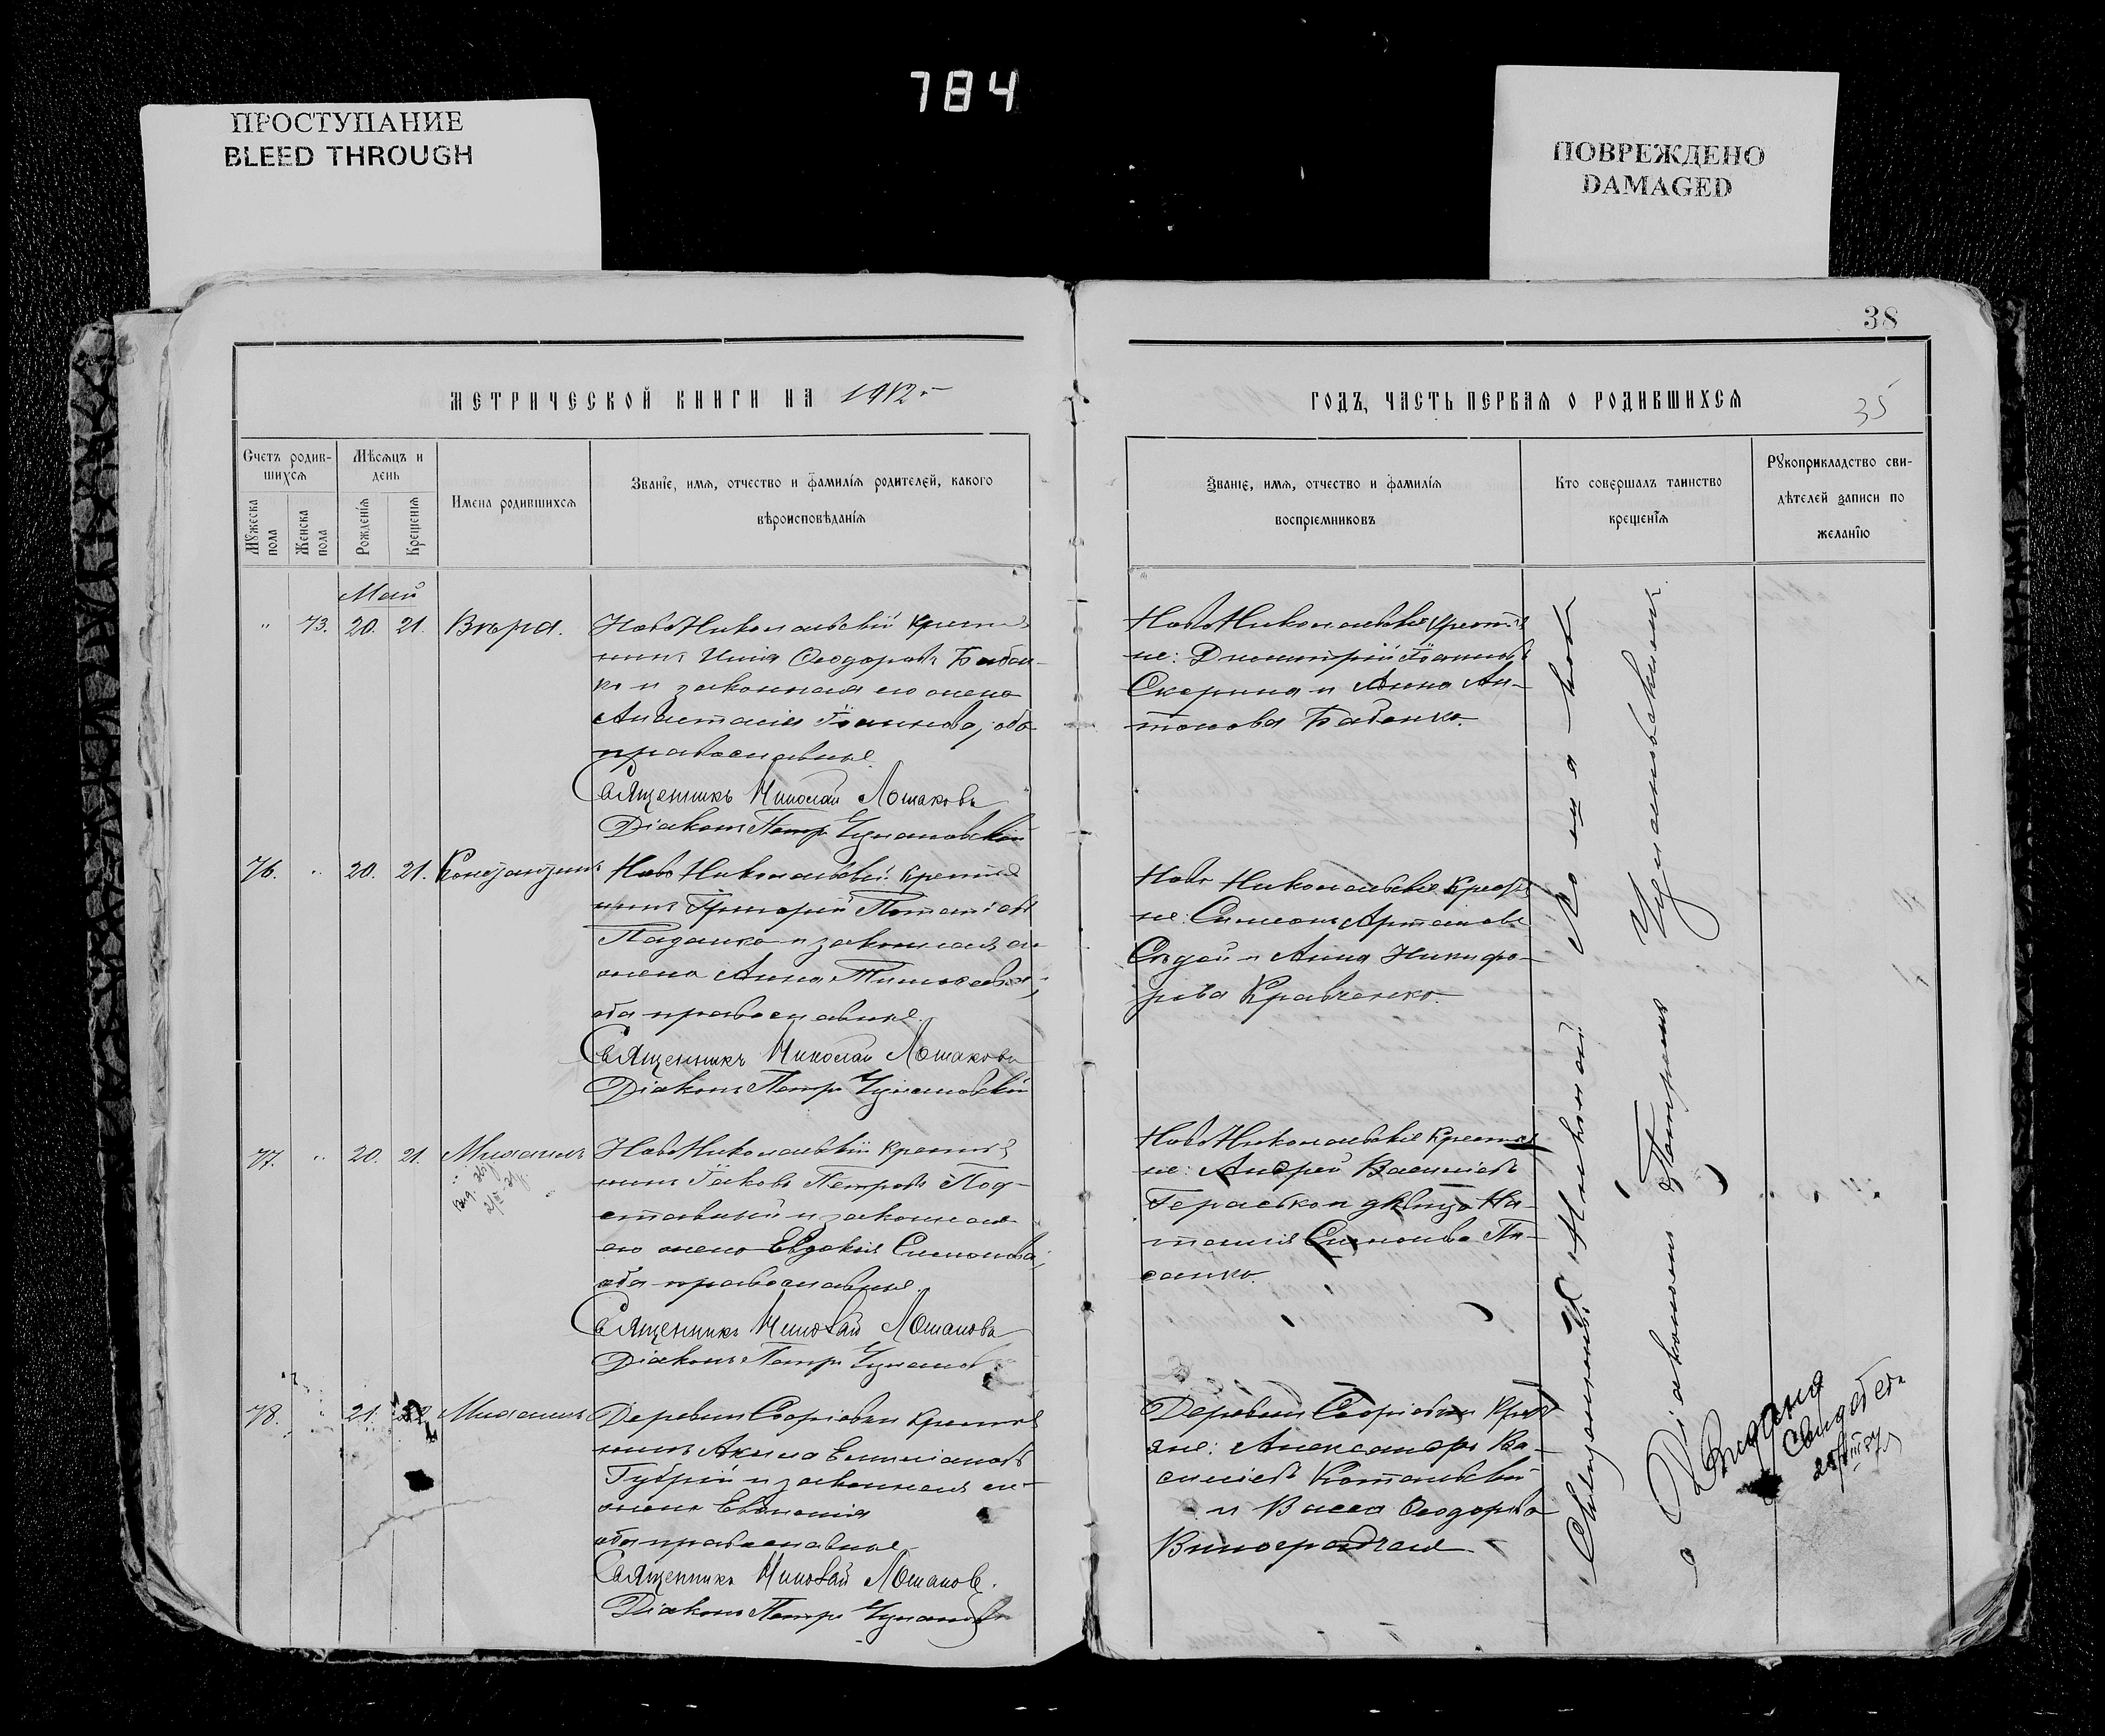 784
ПРОСТУПАНИЕ
BLEED THROUGH
ПОВРЕЖДЕНО
DAMAGED
38
МЕТРИЧЕСКОЙ КНИГИ НА 1912
ГОДЪ, ЧАСТЬ ПЕРВАЯ О РОДИВШИХСЯ
35
Счетъ родив-
шихся
Мужеска
пола
Женска
пола
Мѣсяцъ и
день
Рожденія
Крещенія
Имена родившихся
Званіе, имя, отчество и фамилія родителей, какого
вѣроисповѣданія
Званіе, имя, отчество и фамилія
воспріемниковъ
Кто совершалъ таинство
крещенія
Рукоприкладство сви-
дѣтелей записи по
желанію
Май
" 73. 20. 21. Вѣра.
НовоНикольскій крестья
нинъ Илія Ѳеодоровъ Бабен-
ко и законная его жена
Анастасія Іоаннова, оба
православные.
Священникъ Николай Лошаковъ
Діаконъ Петръ Чумановскій
НовоНикольскіе крестья
не: Димитрій Іоанновъ
Скорина и Анна Ан-
тонова Бабенко.
76. " 20. 21. Константинъ
Ново Никольскій крестья
нинъ Григорій Потаповъ
Паданко и законная его
жена Анна Тимоѳеева,
оба православные.
Священникъ Николай Лошаковъ
Діаконъ Петръ Чумановскій
Ново Никольскіе крестья
не: Симеонъ Артамовъ
Сѣдой и Анна Никифо-
рова Кравченко.
77. " 20. 21. Михаилъ
НовоНикольскій крестья
нинъ Іаковъ Петровъ Под-
ставный и законная
его жена Евдокія Симонова,
оба православные.
Священникъ Николай Лошаковъ
Діаконъ Петръ
НовоНикольскіе крестья
не: Андрей Васильевъ
Гераськo и дѣвица На-
талія Симонова Пи-
санко.
78. 21. Михаилъ
Деревни крестья
нинъ Акила Емиліановъ
Губрій и законная его
жена Евѳимія
оба православные.
Священникъ Николай Лошаковъ.
Діаконъ Петръ
Деревни кресть
яне: Александръ Ва-
сильевъ Котовскій
и Васса Ѳеодорова
Священникъ Николай Лошаковъ
с Діакономъ Петромъ Чумановскимъ.
Выдано
свидетел.